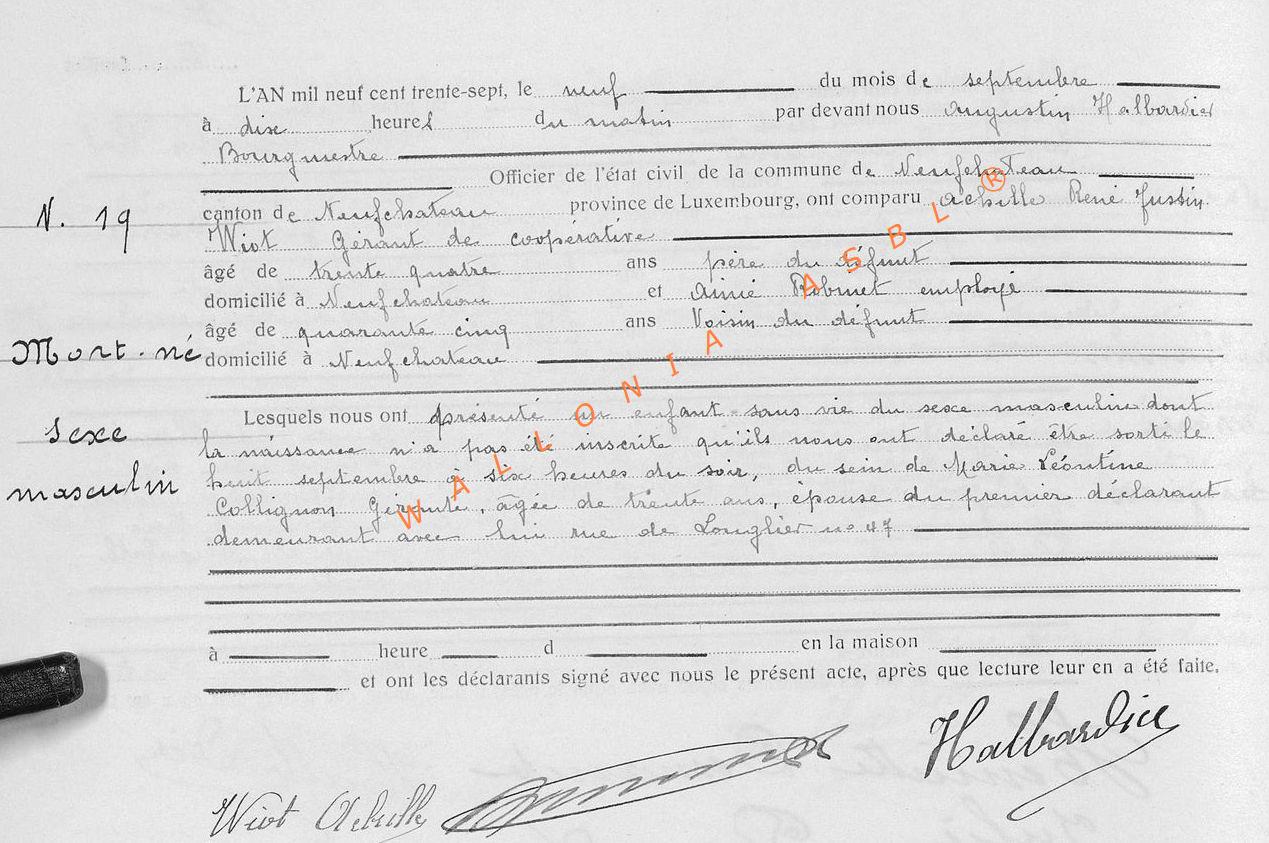 L'AN mil neuf cent trente-sept, le neuf du mois de septembre
à dix heures du matin par devant nous Augustin Halbardier
Bourgmestre
Officier de l'état civil de la commune de Neufchateau
N. 19
canton de Neufchateau province de Luxembourg, ont comparu Achille René Justin
Wiot Gérant de coopérative
âgé de trente quatre ans père du défunt
domicilié à Neufchateau et Aimé Robinet employé
âgé de quarante cinq ans Voisin du défunt
Mort-né
domicilié à Neufchateau
Lesquels nous ont présenté un enfant sans vie du sexe masculin dont
sexe
la naissance n'a pas été inscrite qu'ils nous ont déclaré être sorti le
masculin
huit septembre à six heures du soir, du sein de Marie Léontine
Collignon Gérante, âgée de trente ans, épouse du premier déclarant
demeurant avec lui rue de Longlier no 47
à heure d en la maison
et ont les déclarants signé avec nous le présent acte, après que lecture leur en a été faite.
Halbardier
Wiot Achille
WALLONIA ASBL ®